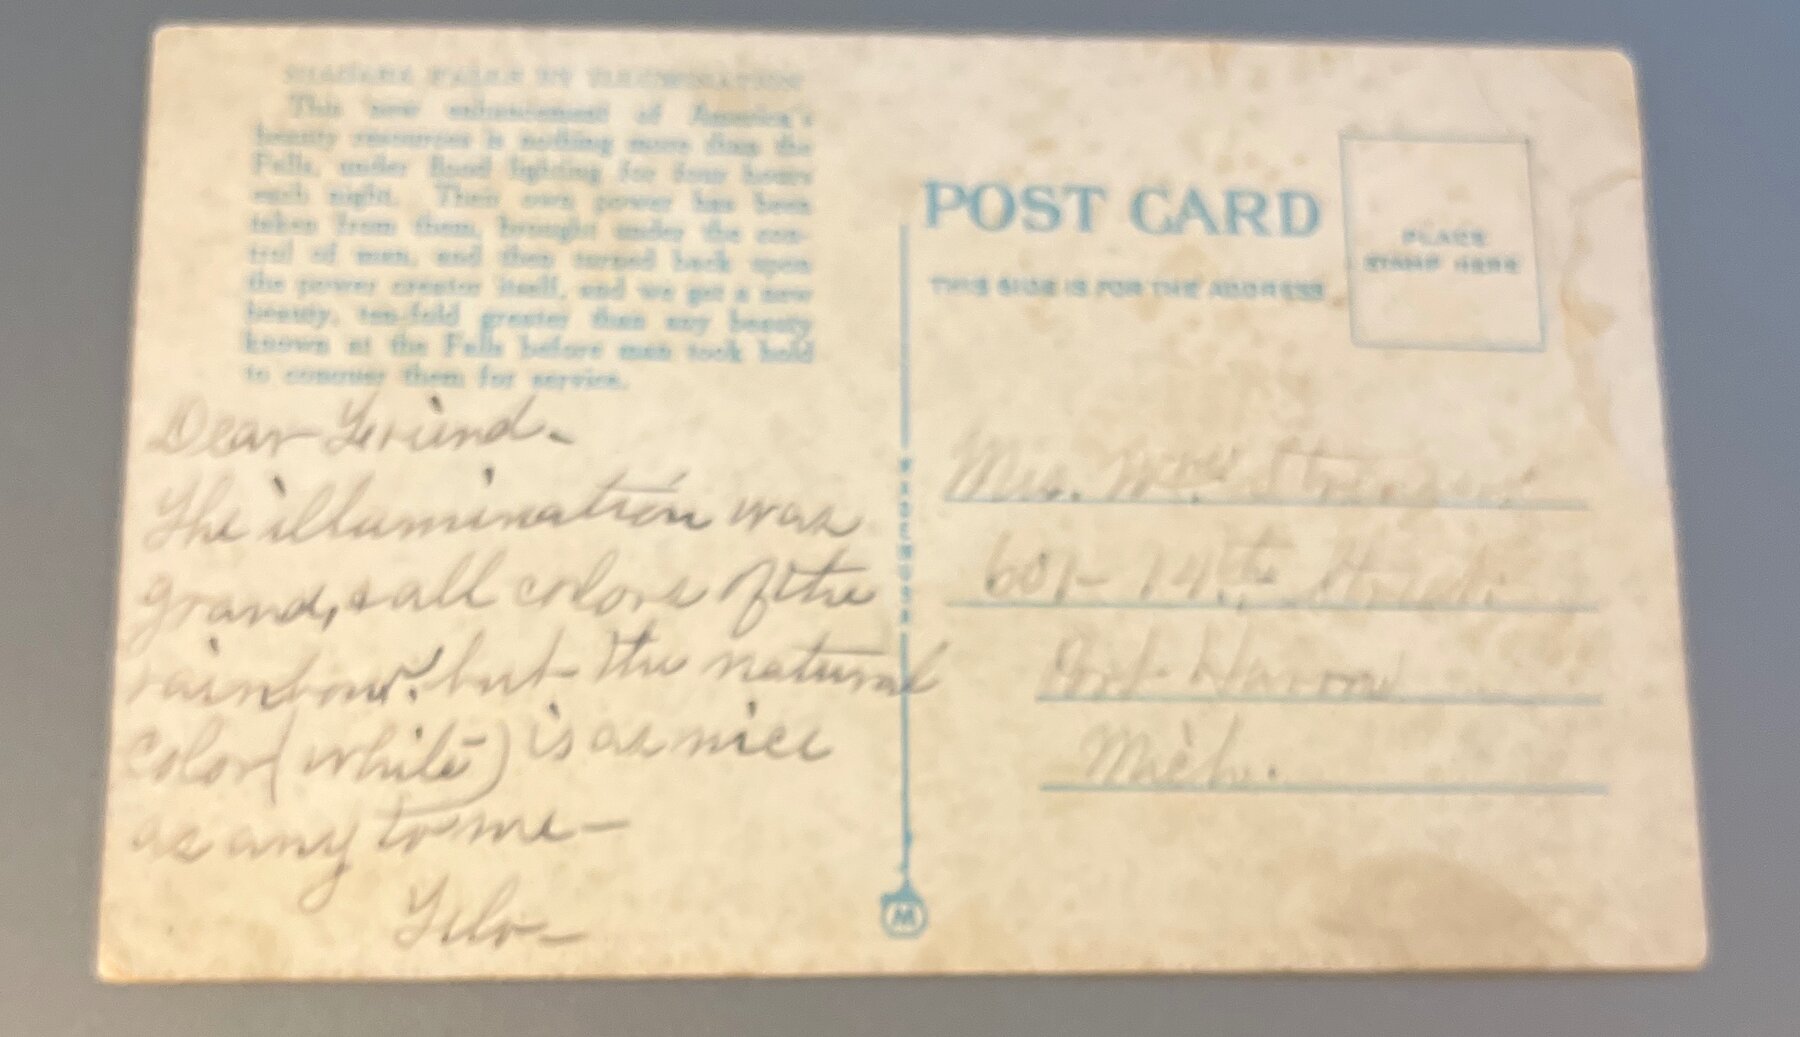 NIAGARA FALLS BY ILLUMINATION
This new enhancement of America's
beauty resources is nothing more than the
Falls, under flood lighting for four hours
each night. Their own power has been
taken from them, brought under the con-
trol of man, and then turned back upon
the power creator itself, and we get a new
beauty, ten-fold greater than any beauty
known at the Falls before man took hold
to conquer them for service.
Dear Friend.
The illumination was
grand, & all colors of the
rainbow. but the natural
color (white) is as nice
as any to me—
POST CARD
THIS SIDE IS FOR THE ADDRESS
PLACE
STAMP HERE
Mrs. Wm.
601- 14th Street.
Port Huron
Mich.
M